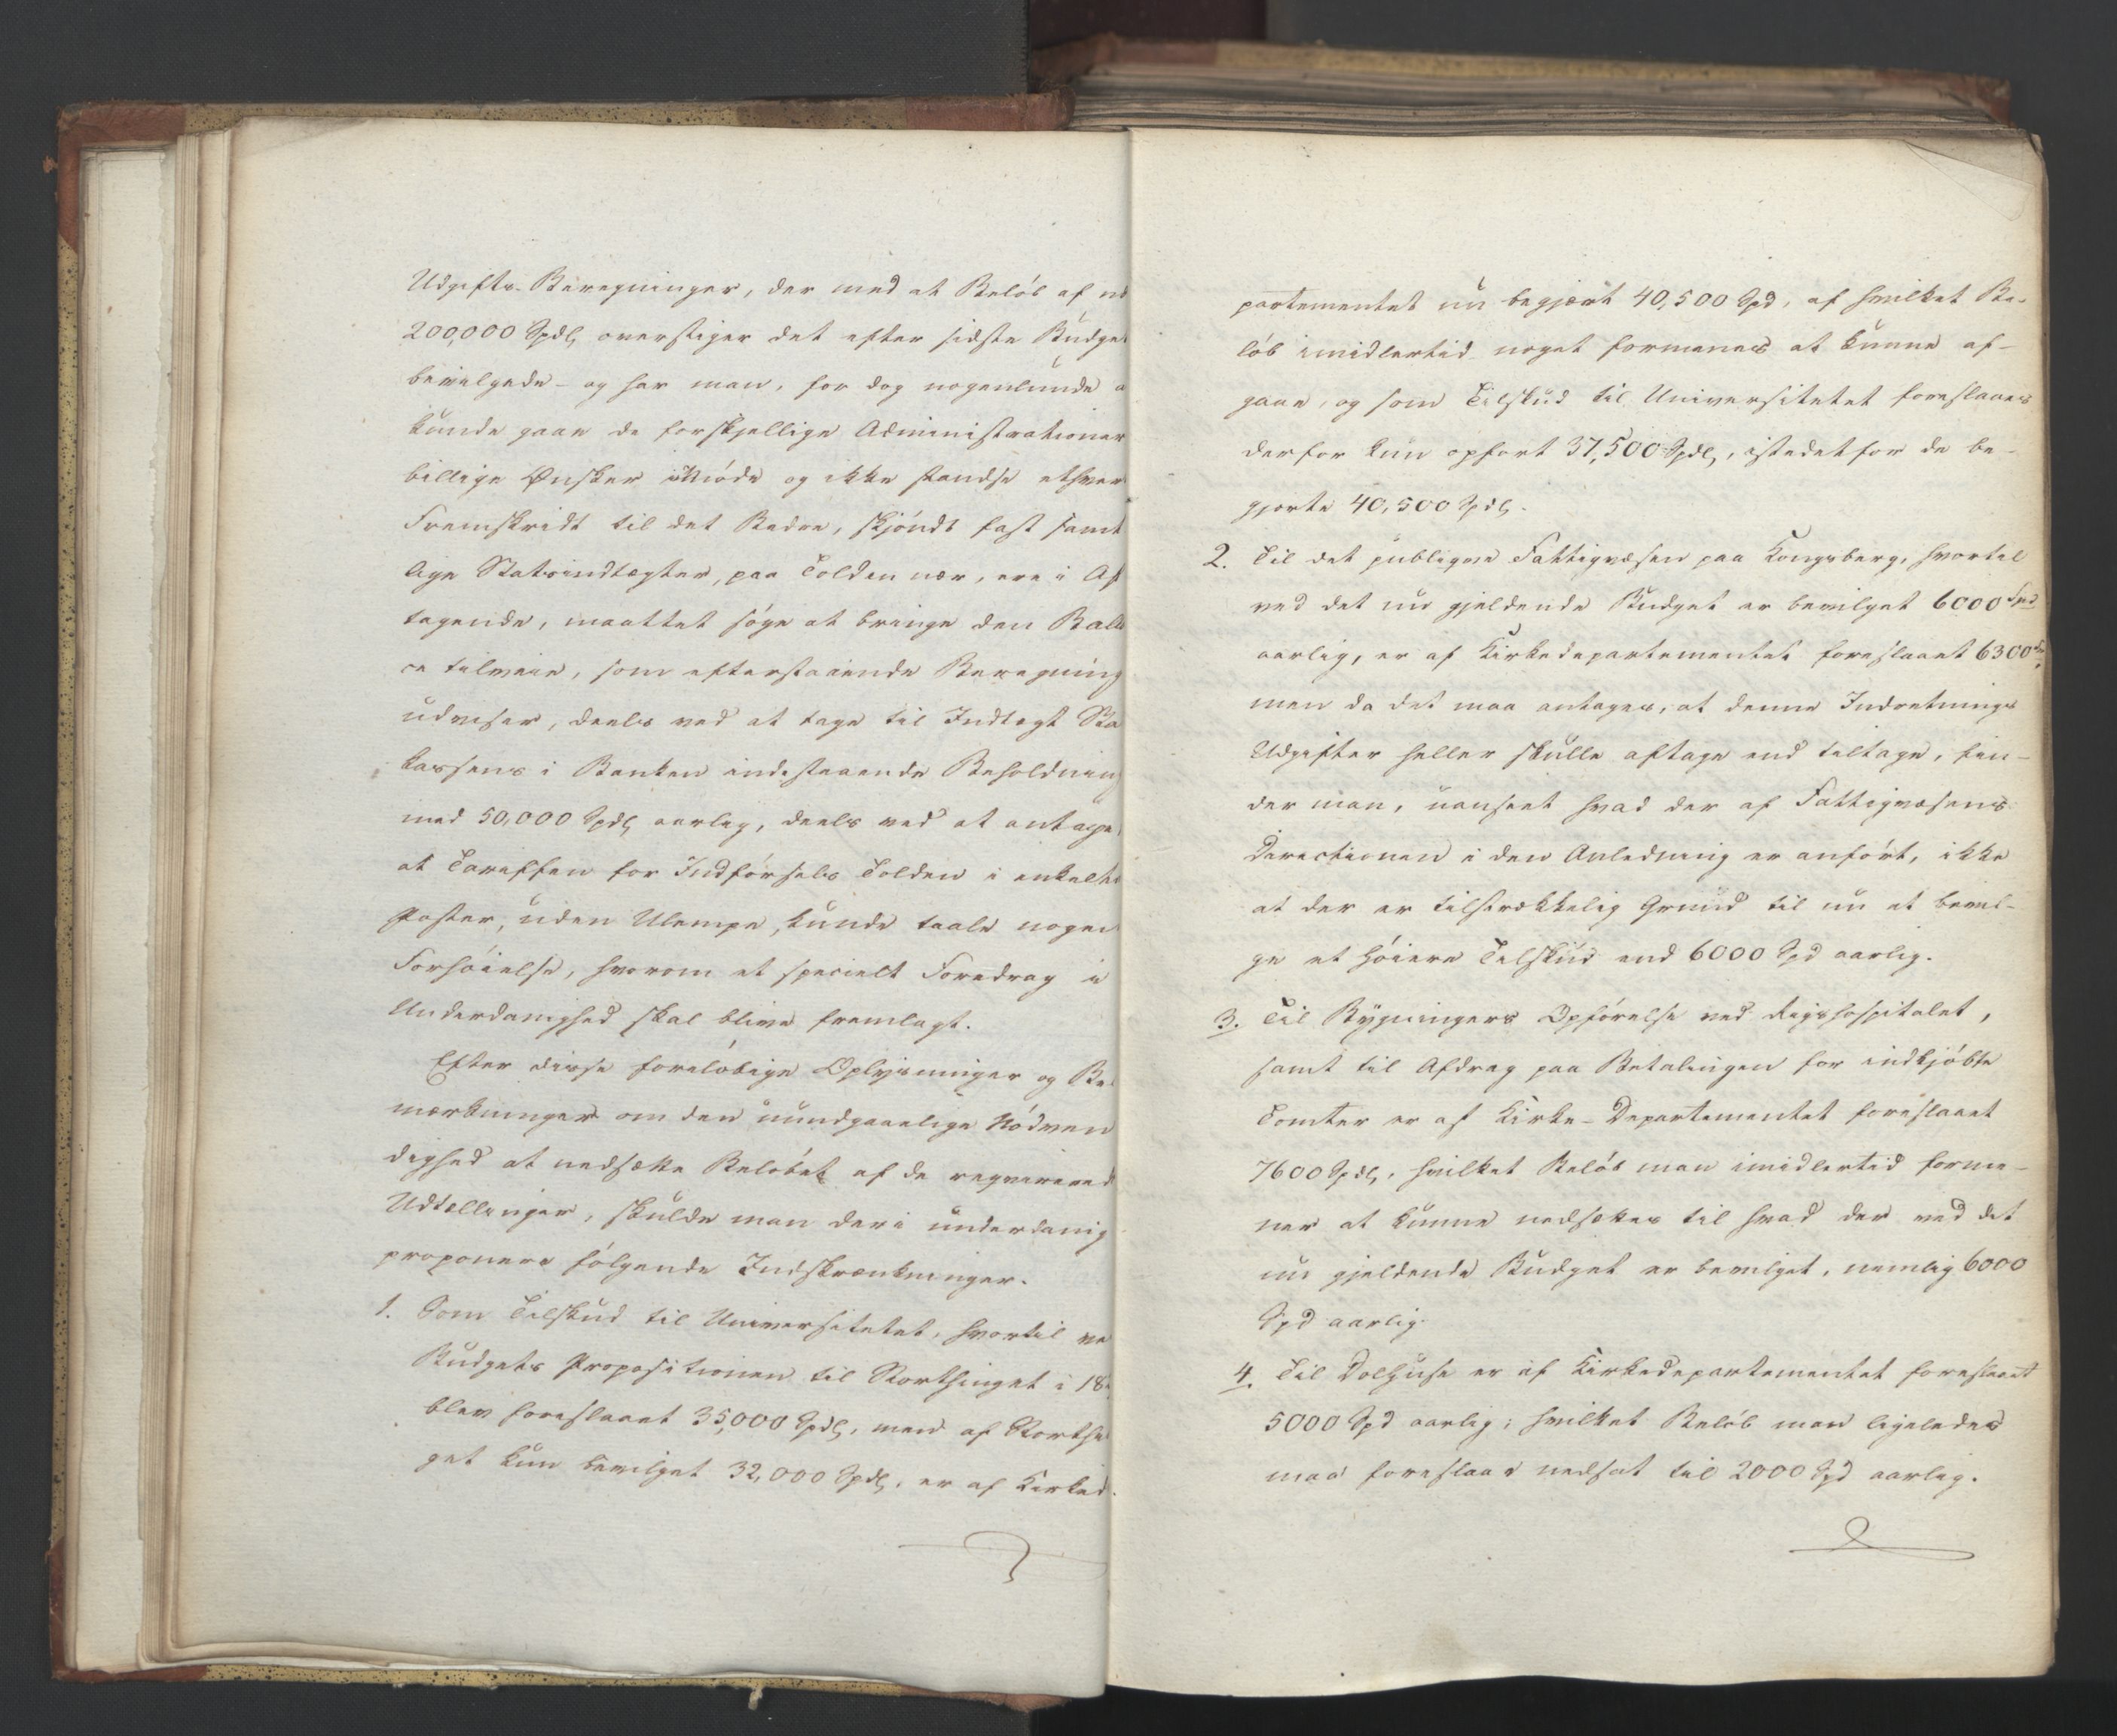 Udgifts-Beregninger, der med et Beløb af
200,000 Spdl, overstiger det efter sidste Budget
bevilgede - og har man, for dog nogenlunde
kunde gaae de forskjellige Administrationer
billige Ønsker imøde og ikke standse ethver
Fremskridt til det Bedre, skjøndt fast samt
lige Statsindtægter, paa Tolden nær, ere i Af
tagende, maattet søge at bringe den Balle
ce tilveie, som efterstaaende Beregning
udviser, deels ved at tage til Indtægt Sta
kassens i Banken indestaaende Beholdning
med 50,000 Spdl, aarlig, deels ved at antage
at Tariffen for Indførsels Tolden i enkelte
Poster, uden Ulempe, kunde taale nogen
Forhøielse, hvorom et specielt Foredrag i
Underdanighed skal blive fremlagt.
Efter disse foreløbige Oplysninger og Be
mærkninger om den uundgaaelige Nødven
dighed at nedsætte Beløbet af de reqvirered
Udtællinger, skulde man deri underdanig
proponere følgende Indskrænkninger.
1. Som Tilskud til Universitetet, hvortil ve
Budgets Propositionen til Storthinget i 18
blev foreslaaet 35,000 Spdl, men af Storthi
get kun bevilget 32,000 Spdl, er af Kirked
partementet nu begjært 40,500 Spd, af hvilket Be-
løb imidlertid noget formenes at kunne af-
gaae, og som Tilskud til Universitetet foreslaaes
derfor kun opført 37,500 Spdl, istedetfor de be-
gjerte 40,500 Spdl.
2. Til det publiqve Fattigvæsen paa Kongsberg, hvortil
ved det nu gjeldende Budget er bevilget 6000 Spd
aarlig, er af Kirkedepartementet foreslaaet 6300 Spd,
men da det maa antages, at denne Indretnings
Udgifter heller skulle aftage end tiltage, fin-
der man, uanseet hvad der af Fattigvæsens
Directionen i den Anledning er anført, ikke
at der er tilstrækkelig Grund til nu at bevil-
ge et høiere Tilskud end 6000 Spd aarlig.
3. Til Bygningers Opførelse ved Rigshospitalet,
samt til Afdrag paa Betalingen for indkjøbte
Tomter er af Kirke-Departementet foreslaaet
7600 Spdl, hvilket Beløb man imidlertid forme-
ner at kunne nedsættes til hvad der ved det
nu gjeldende Budget er bevilget, nemlig 6000
Spd aarlig.
4. Til Dolhuse er af Kirkedepartementet foreslaaet
5000 Spd aarlig; hvilket Beløb man ligeledes
maa foreslaae nedsat til 2000 Spd aarlig.